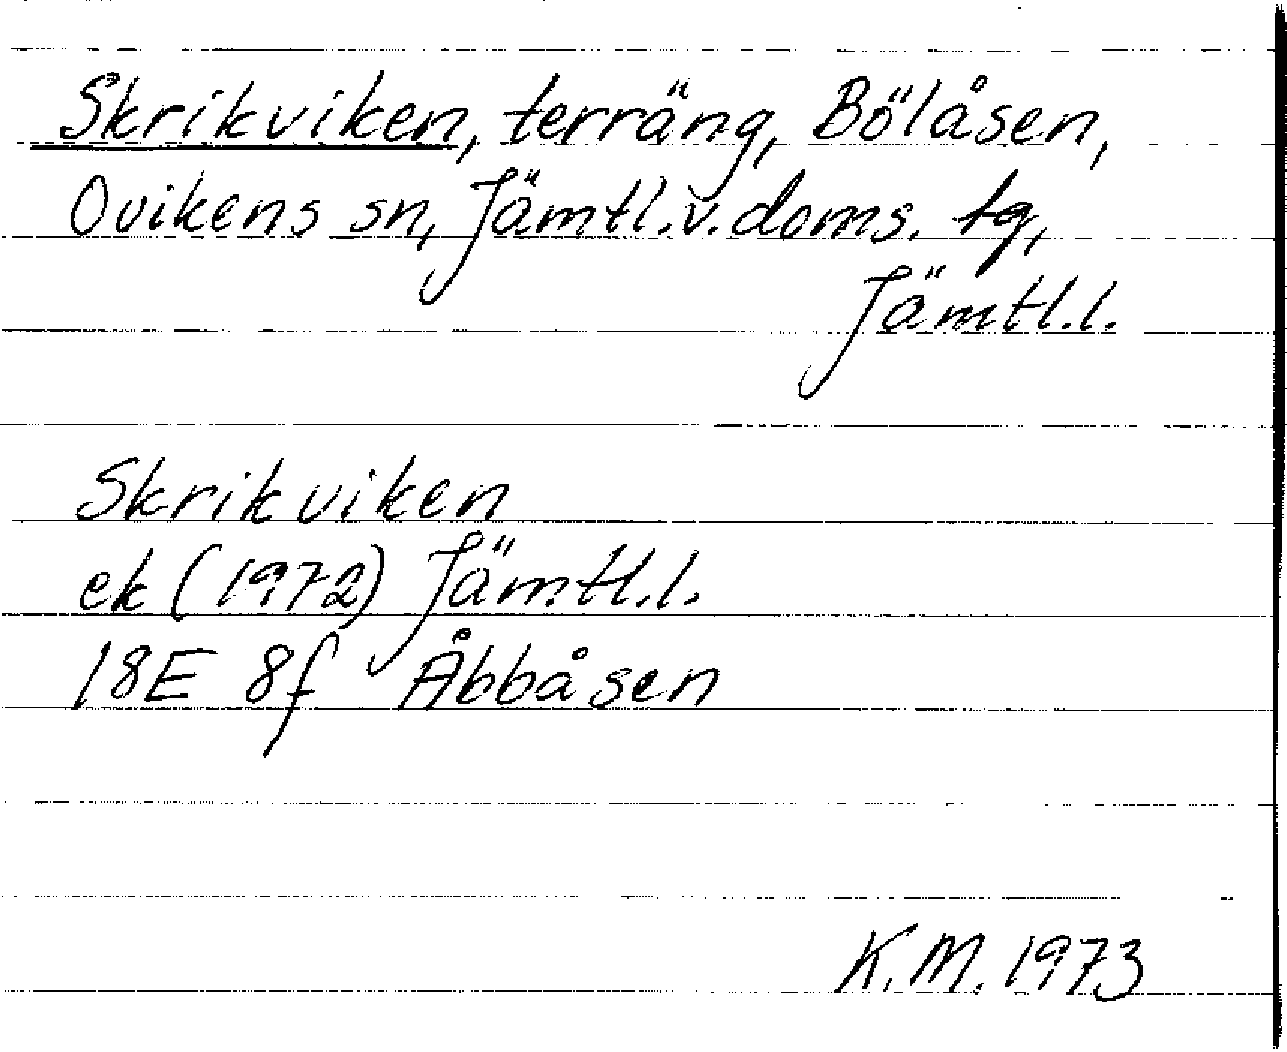 Skrikviken, terräng, Bölåsen,
Ovikens sn, Jämtl.v.doms. tg,
Jämtl.l.
Skrikviken
ek (1972) Jämtl.l.
18E 8f Åbbåsen
K.M. 1973